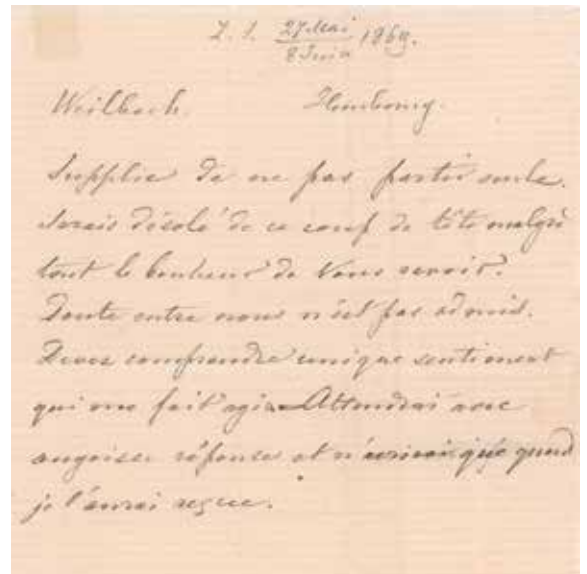 Z. S. 27 Mai / 8 Juin 1869.
Weilbach Hombourg.
Supplie de ne pas partir seule.
Serais désolé de ce coup de tête malgré
tout le bonheur de Vous revoir.
Doute entre nous n'est pas admis.
Devez comprendre unique sentiment
qui me fait agir. Attendrai avec
angoisse réponse et n'écrirai que quand
je l'aurai reçue.